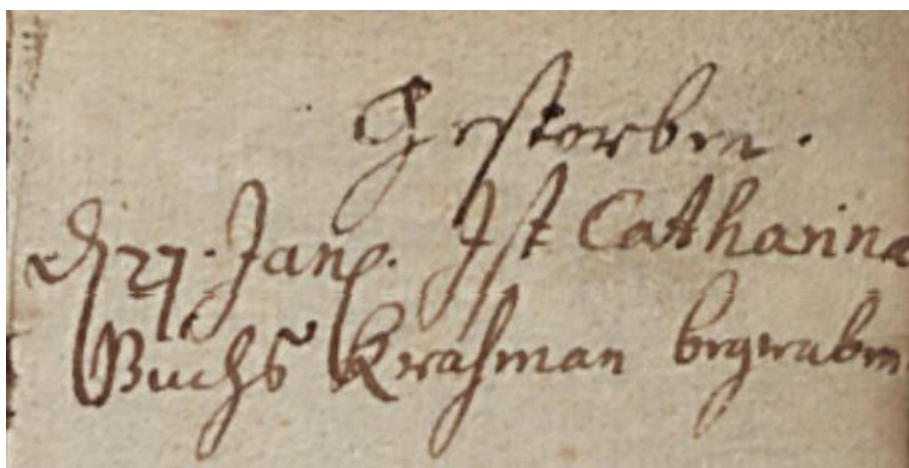 Gestorben.
d 27. Jan. Ist Catharina
Buchs Krahman begraben.